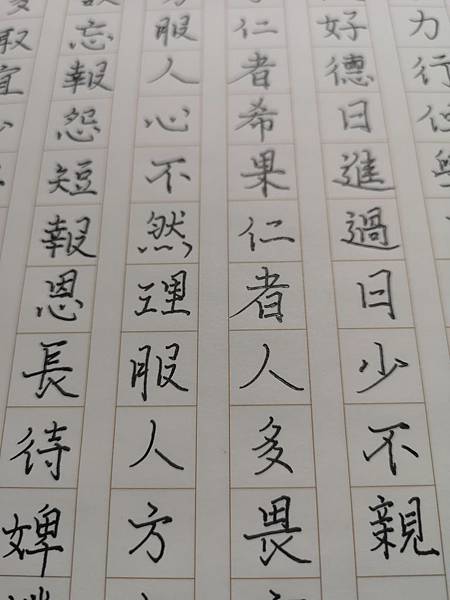 力行
好德日進過日少不親
仁者希果仁者人多畏
服人心不然理服人方
忘報怨短報恩長待婢
取宜